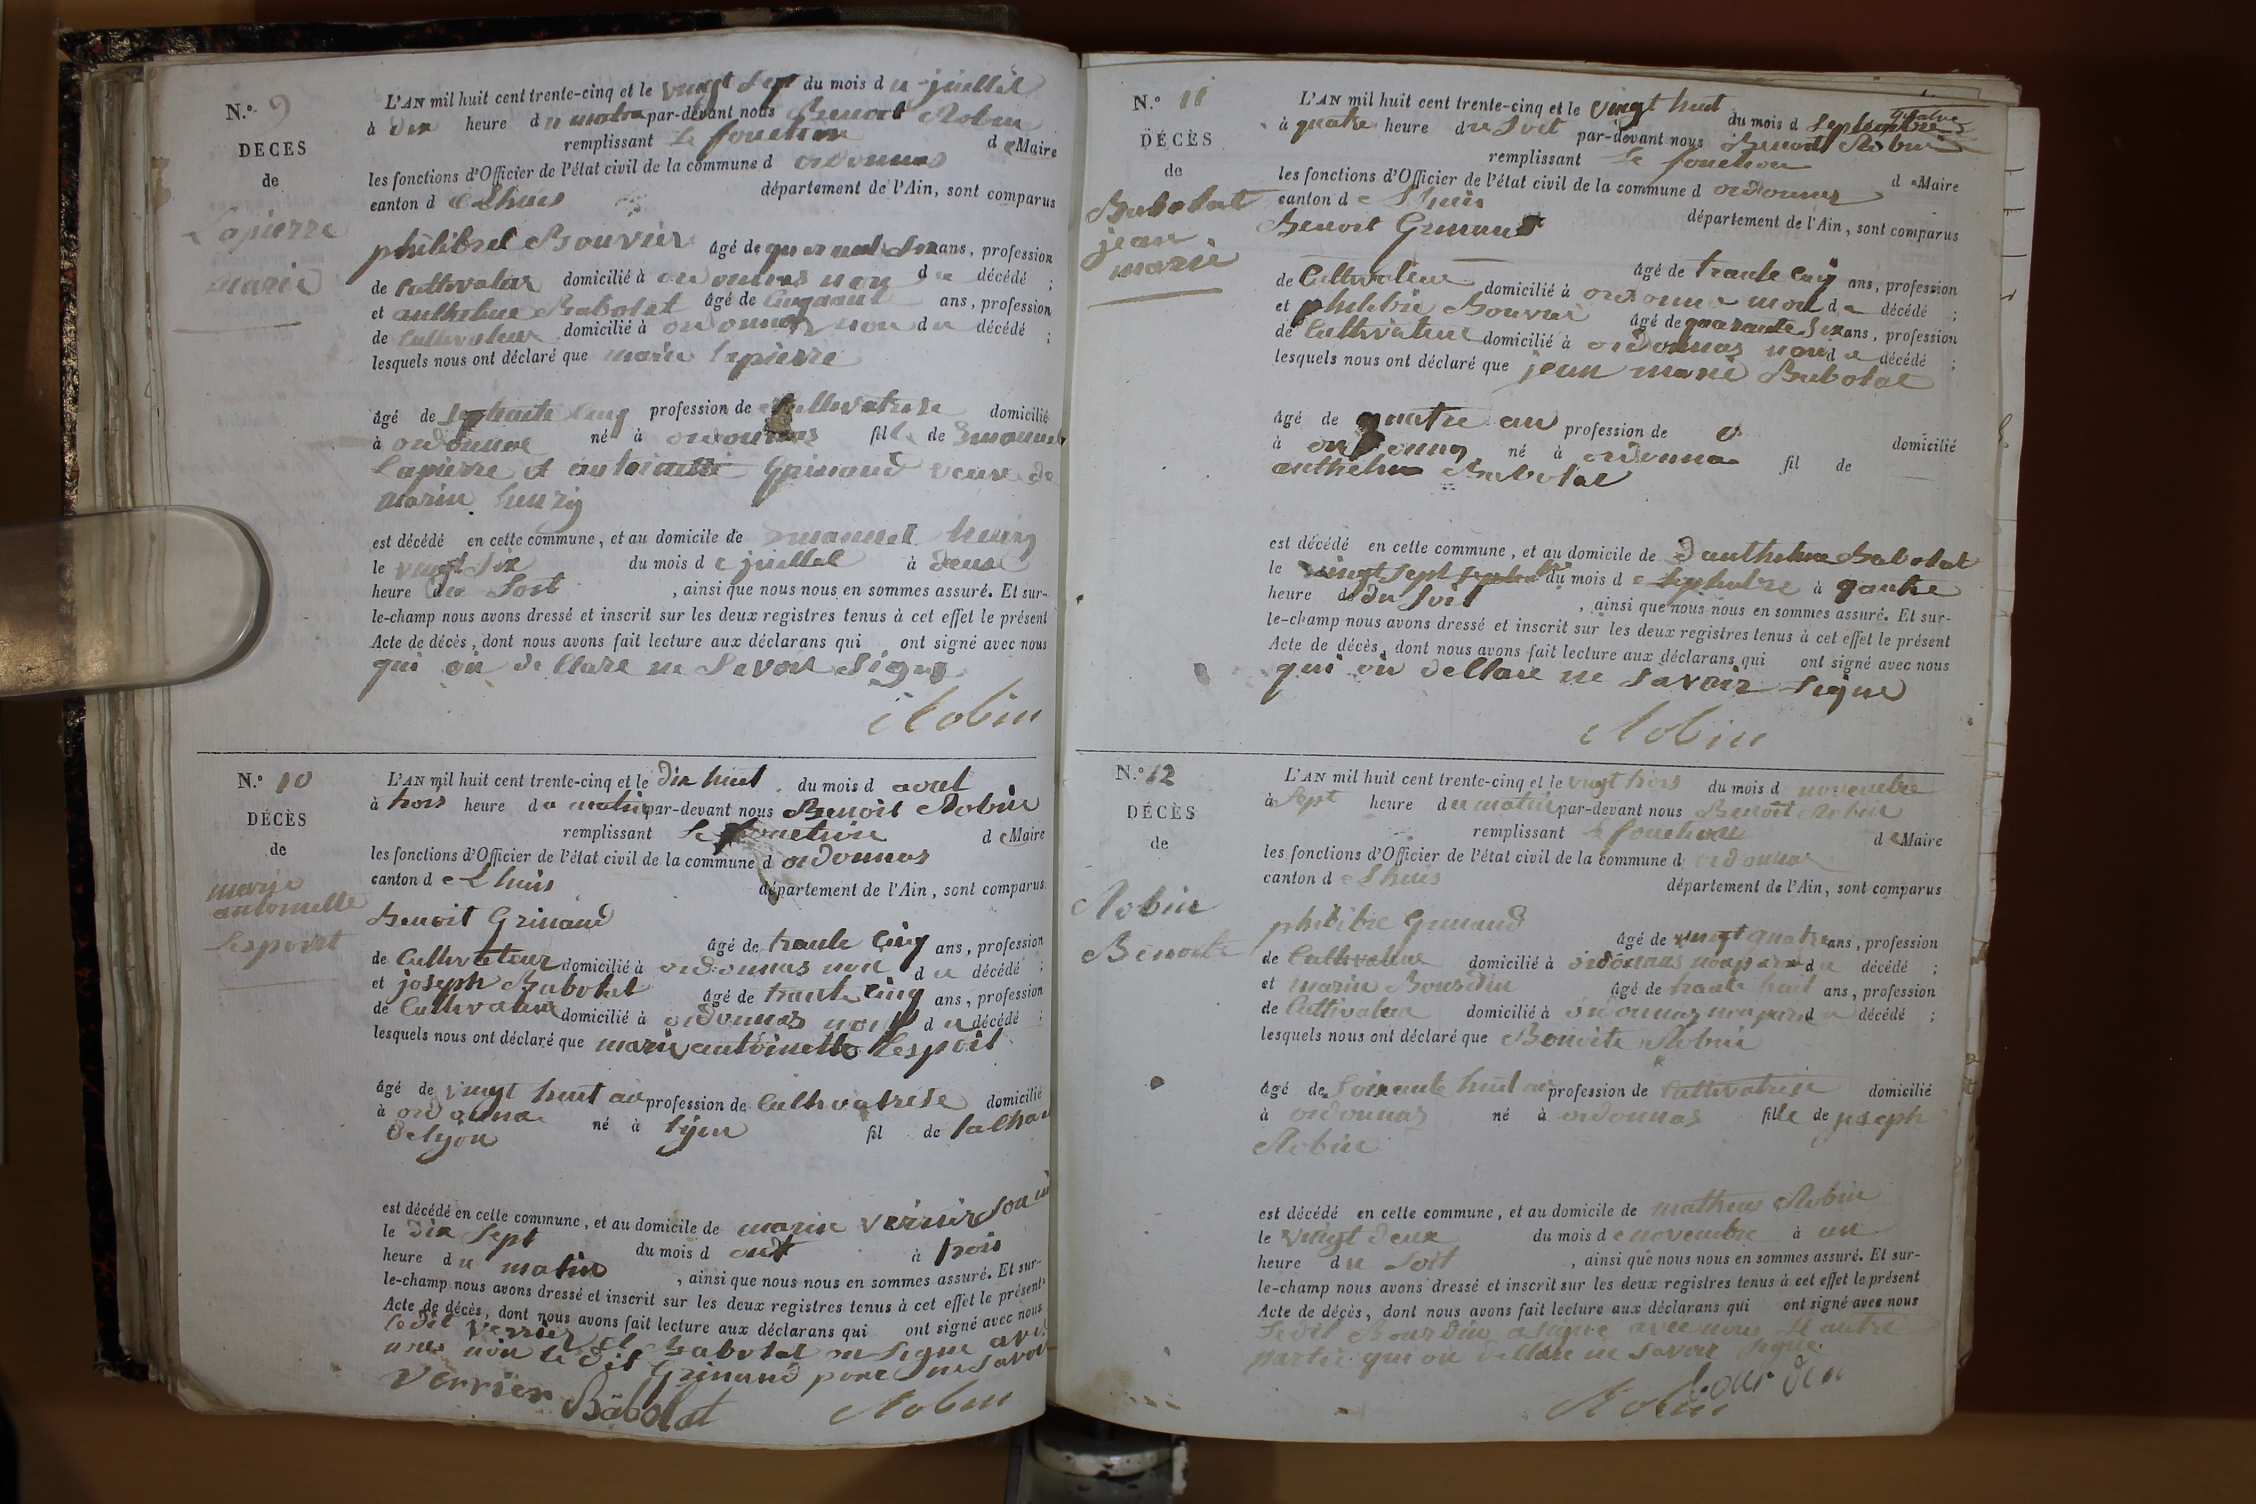 N.º 9
DECES
de
Lapierre
marie
L'AN mil huit cent trente-cinq et le vingt sept du mois d u juillet
à dix heure d u matin par-devant nous Benoit Robin
remplissant le fonction d e Maire
les fonctions d'Officier de l'état civil de la commune d ordonnas
canton d e Lhuis département de l'Ain, sont comparus
philibert Bouvier âgé de quarante six ans, profession
de Cultivateur domicilié à ordonnas non d u décédé ;
et anthelme Babolat âgé de cinquante ans, profession
de Cultivateur domicilié à ordonnas non d u décédé ;
lesquels nous ont déclaré que marie lapierre
âgé de septante cinq profession de Cultivatrise domicilié
à ordonnas né à ordonnas fille de
Lapierre et antoinette Grinand veuve de
marin hung
est décédé en cette commune, et au domicile de hung
le vingt six du mois d e juillet à deux
heure du soit , ainsi que nous nous en sommes assuré. Et sur-
le-champ nous avons dressé et inscrit sur les deux registres tenus à cet effet le présent
Acte de décès, dont nous avons fait lecture aux déclarans qui ont signé avec nous
qui on dellare ne Savoir Signe
Robin
N.º 10
DÉCÈS
de
marie
antoinette
Lespoirt
L'AN mil huit cent trente-cinq et le dix huit du mois d aout
à trois heure d u matin par-devant nous Benoit Robin
remplissant le fonction d e Maire
les fonctions d'Officier de l'état civil de la commune d ordonnas
canton d e Lhuis département de l'Ain, sont comparus
Benoit Grinand
âgé de trante cinq ans, profession
de Cultivateur domicilié à ordonnas non d u décédé ;
et joseph Babolat âgé de trante cinq ans, profession
de Cultivateur domicilié à ordonnas non d u décédé ;
lesquels nous ont déclaré que marie antoinette Lespoit
âgé de vingt huit an profession de Cultivatrise domicilié
à ordonna né à lyon fil de
de lyon
est décédé en cette commune, et au domicile de marin verrier son
le dix sept du mois d out à trois
heure d u matin , ainsi que nous nous en sommes assuré. Et sur-
le-champ nous avons dressé et inscrit sur les deux registres tenus à cet effet le présent
Acte de décès, dont nous avons fait lecture aux déclarans qui ont signé avec nous
ledit verrier et babolat on signe
non le dit Grinand
verrier Babolat Robin
N.º 11
DÉCÈS
de
Babolat
jean
marie
L'AN mil huit cent trente-cinq et le vingt huit du mois d septembre
à quatre heure du soit par-devant nous Benoit Robin
remplissant le fonction d e Maire
les fonctions d'Officier de l'état civil de la commune d ordonnas
canton d e Lhuis département de l'Ain, sont comparus
Benoit Grinand
âgé de trante cinq ans, profession
de Cultivateur domicilié à ordonna non d u décédé ;
et philibre Bouvier âgé de quarante six ans, profession
de Cultivateur domicilié à ordonnas non d u décédé ;
lesquels nous ont déclaré que jean marie Babolat
âgé de quatre an profession de domicilié
à ordonna né à ordonna fil de
anthelme Babolat
est décédé en cette commune, et au domicile de d'anthelme Babolat
le vingt sept du mois d e à quatre
heure de du soit , ainsi que nous nous en sommes assuré. Et sur-
le-champ nous avons dressé et inscrit sur les deux registres tenus à cet effet le présent
Acte de décès, dont nous avons fait lecture aux déclarans qui ont signé avec nous
qui on dellare ne savoir signe
Robin
N.º 12
DÉCÈS
de
Robin
Benoite
L'AN mil huit cent trente-cinq et le vingt trois du mois d novembre
à sept heure d u matin par-devant nous Benoit Robin
remplissant le fonction d e Maire
les fonctions d'Officier de l'état civil de la commune d ordonnas
canton d e Lhuis département de l'Ain, sont comparus
philibre Grinand âgé de vingt quatre ans, profession
de Cultivateur domicilié à ordonnas non paran d u décédé ;
et marin Bourdin âgé de trante huit ans, profession
de Cultivateur domicilié à ordonnas non paran d u décédé ;
lesquels nous ont déclaré que Benoite Robin
âgé de soixante huit an profession de Cultivatrise domicilié
à ordonnas né à ordonnas fille de joseph
Robin
est décédé en cette commune, et au domicile de mathieu Robin
le vingt deux du mois d e novembre à un
heure du soit , ainsi que nous nous en sommes assuré. Et sur-
le-champ nous avons dressé et inscrit sur les deux registres tenus à cet effet le présent
Acte de décès, dont nous avons fait lecture aux déclarans qui ont signé avec nous
le dit Bourdin a signe avec nous et autre
partie qui on dellare ne savoir signe
bourdin
Robin